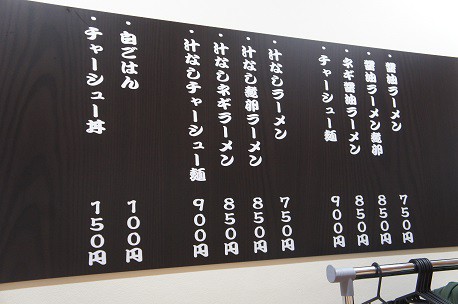 ・醤油ラーメン 750円
・醤油ラーメン麺卵 850円
・ネギ醤油ラーメン 850円
・チャーシュー麺 900円
・汁なしラーメン 750円
・汁なし麺卵ラーメン 850円
・汁なしネギラーメン 850円
・汁なしチャーシュー麺 900円
・白ごはん 100円
・チャーシュー丼 150円